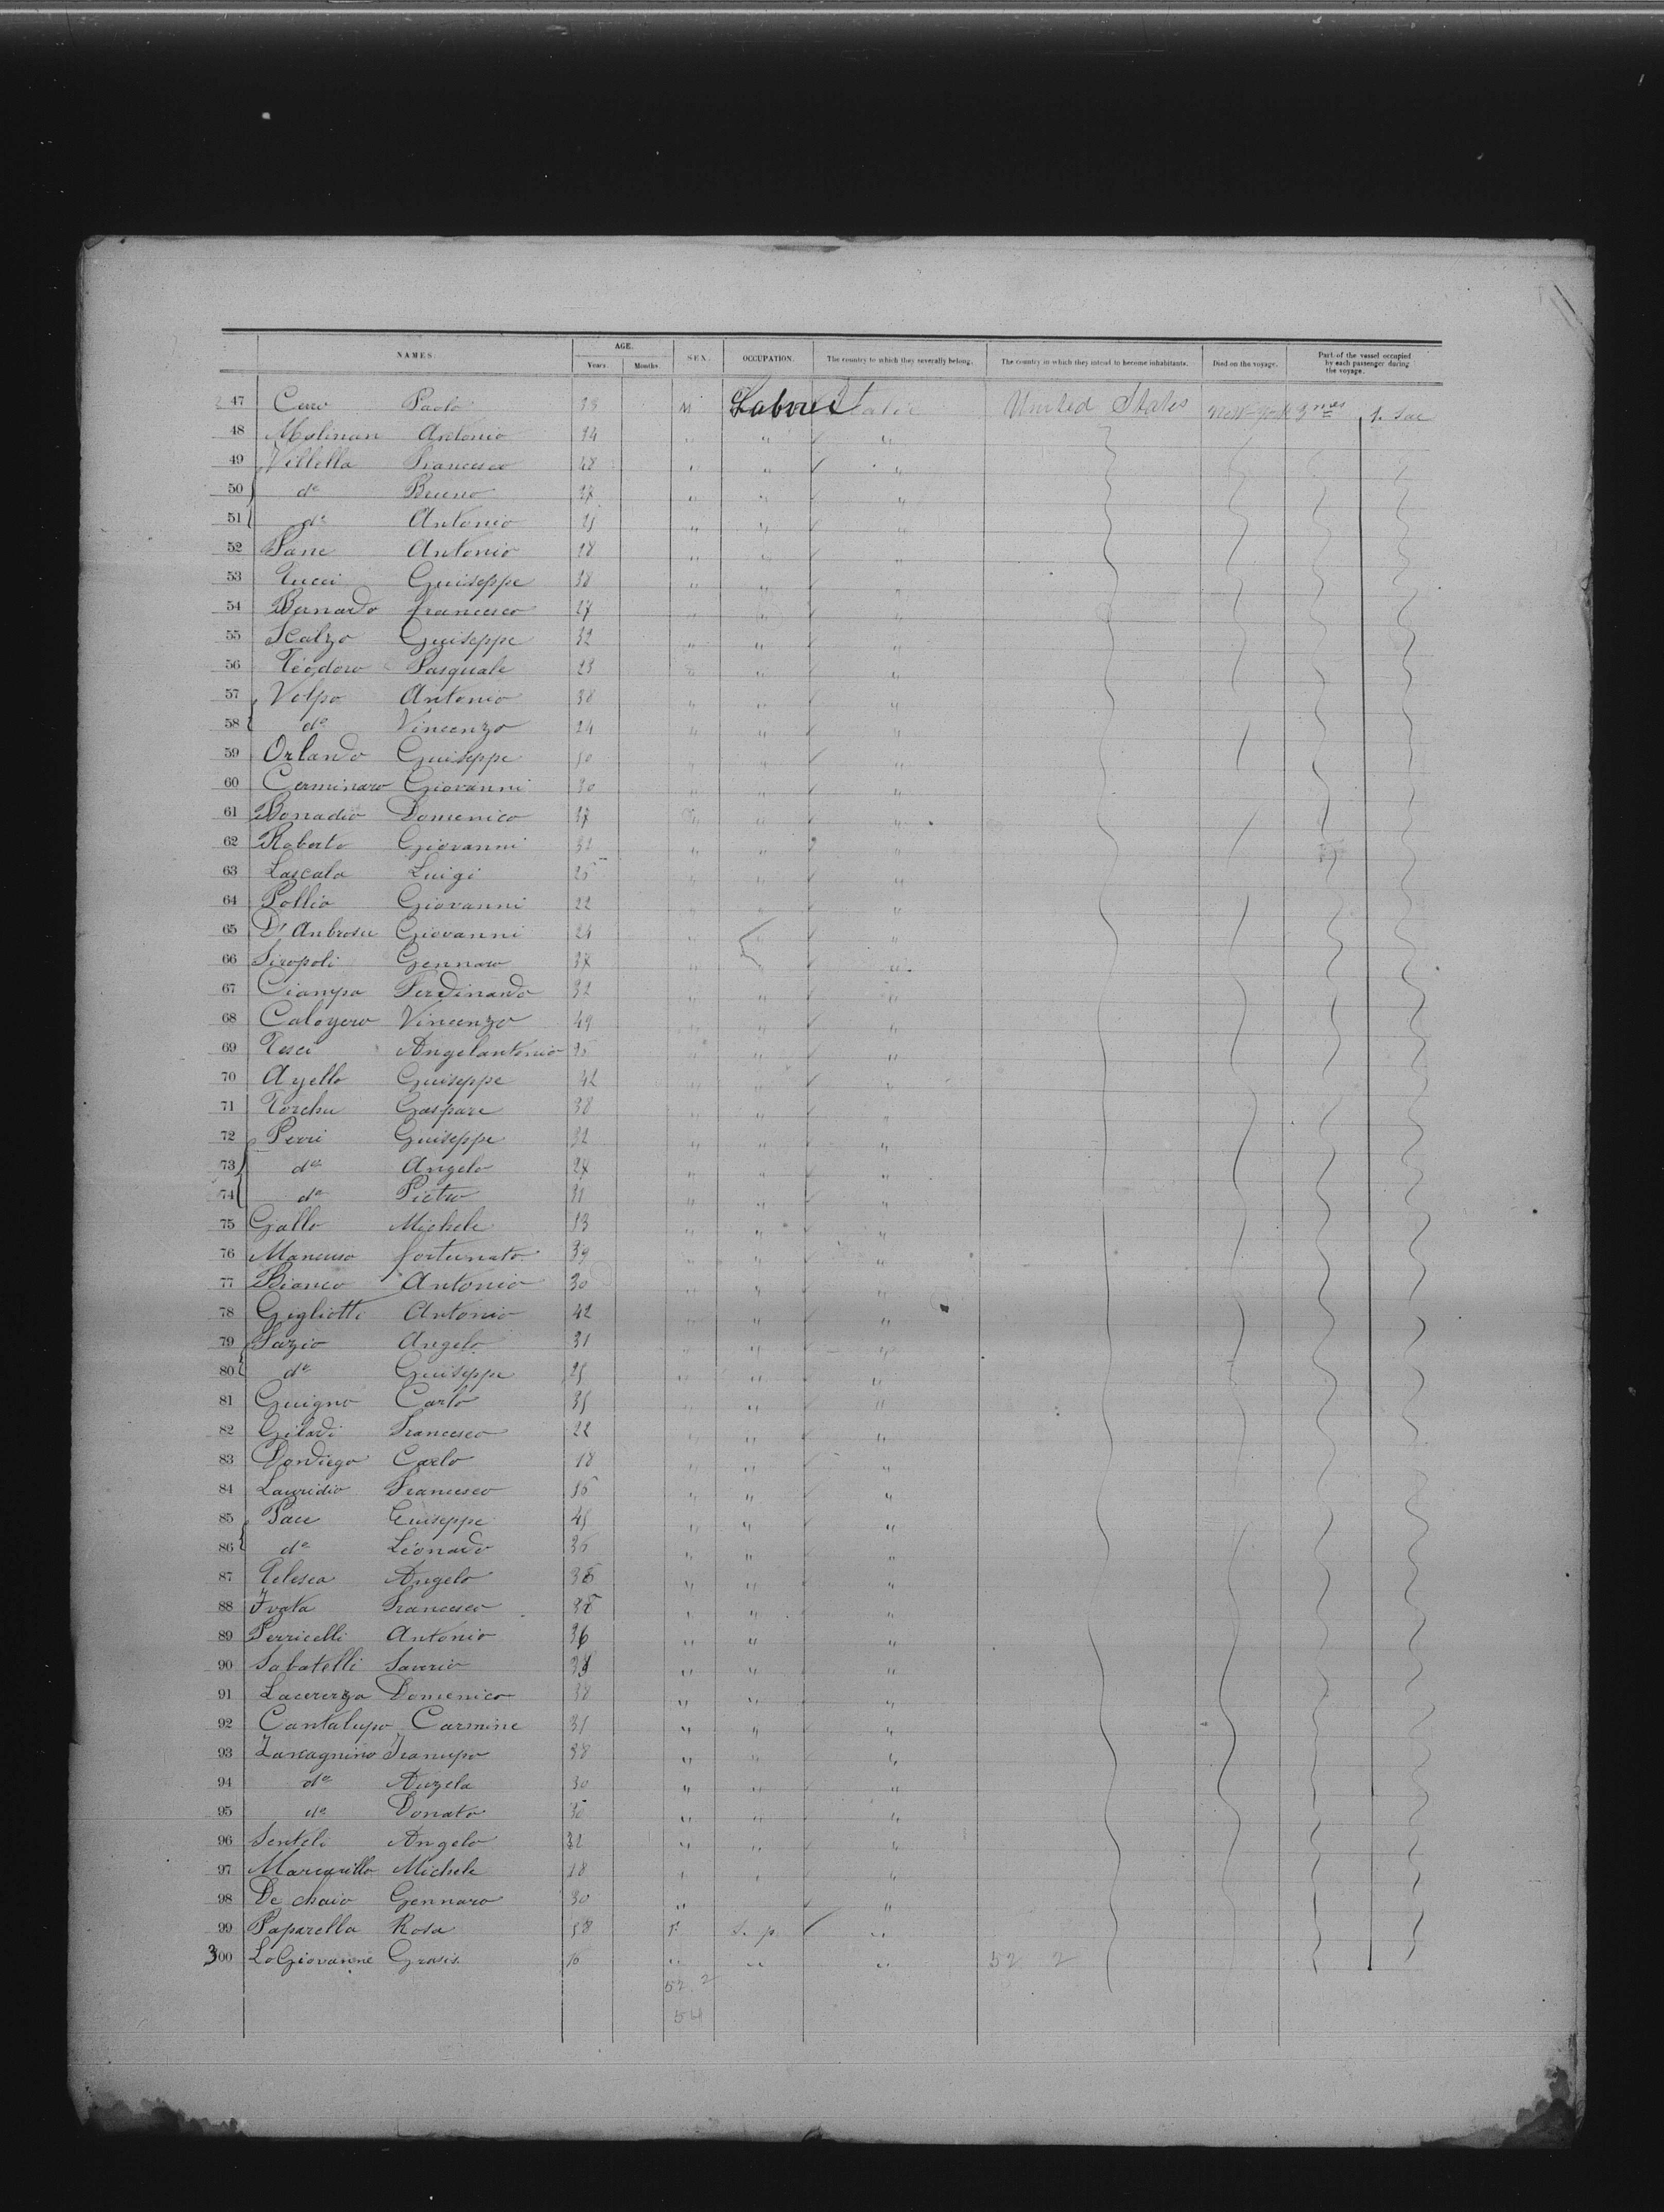 NAMES. AGE. SEX. OCCUPATION. The country to which they severally belong. The country in which they intend to become inhabitants. Died on the voyage. Part of the vessel occupied by each passenger during the voyage.
Years Months
47 Curo Paolo 33 M Laborer Italie United States New-York 3mes 1. Sac
48 Molinari Antonio 24 " " "
49 Villella Francesco 48 " " "
50 do Bruno 27 " " "
51 do Antonio 25 " " "
52 Pane Antonio 28 " " "
53 Tucci Guiseppe 38 " " "
54 Bernardo francesco 27 " " "
55 Scalzo Guiseppe 32 " " "
56 Téodoro Pasquale 23 " " "
57 Volpo Antonio 38 " " "
58 do Vincenzo 24 " " "
59 Orlando Guiseppe 50 " " "
60 Cerminaro Giovanni 30 " " "
61 Bonadio Domenico 37 " " "
62 Roberto Giovanni 32 " " "
63 Lascala Luigi 25 " " "
64 Pollio Giovanni 22 " " "
65 D'Anbrosu Giovanni 24 " " "
66 Siropoli Gennaro 38 " " "
67 Ciampa Ferdinando 32 " " "
68 Caloyero Vincenzo 49 " " "
69 Tesci Angelantonio 35 " " "
70 Ayello Guiseppe 42 " " "
71 Torchu Gaspare 38 " " "
72 Perri Guiseppe 32 " " "
73 do Angelo 27 " " "
74 do Pietro 31 " " "
75 Gallo Michele 13 " " "
76 Mancuso fortunato 39 " " "
77 Bianco Antonio 30 " " "
78 Gigliotti Antonio 42 " " "
79 Fazio Angelo 31 " " "
80 do Guiseppe 25 " " "
81 Guigno Carlo 35 " " "
82 Gilardi Francesco 22 " " "
83 Dondiego Carlo 18 " " "
84 Lauridio Francesco 36 " " "
85 Pace Guiseppe 45 " " "
86 do Léonardo 36 " " "
87 Telesca Angelo 36 " " "
88 Ivata Francesco 38 " " "
89 Perricelli Antonio 36 " " "
90 Sabatelli Saverio 39 " " "
91 Lacererza Domenico 38 " " "
92 Cantalupo Carmine 31 " " "
93 Zarcagnino 38 " " "
94 do Angela 30 " " "
95 do Donato 30 " " "
96 Senteli Angelo 32 " " "
97 Marcarillo Michele 18 " " "
98 De chaio Gennaro 30 " "
99 Paparella Rosa 58 F s. p. "
300 LoGiovanne 16 " " " 52 2
52 2
54